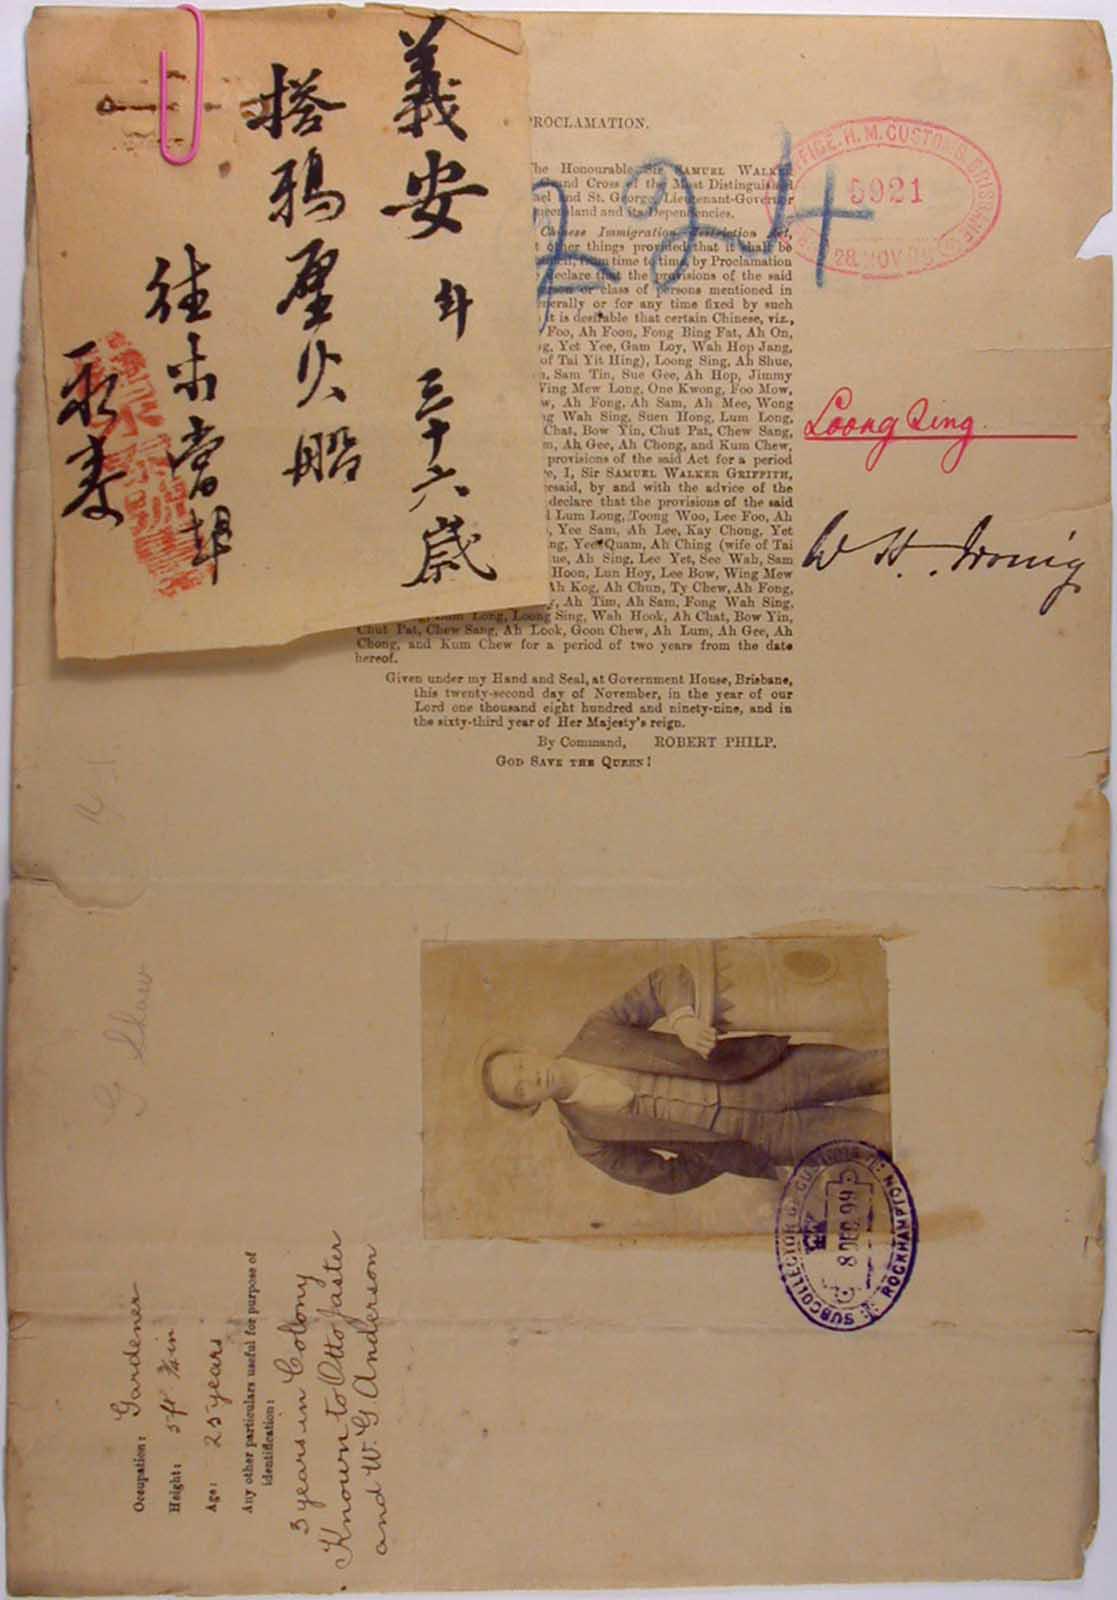 義安年三十六歲
搭鴉厘火船
往
永壽
PROCLAMATION.
The Honourable Sir SAMUEL WALKER
Grand Cross of the Most Distinguished
ael and St. George, Lieutenant-Governor
ueensland and its Dependencies.
Chinese Immigration Restriction Act,
t other things provided that it shall be
from time to time, by Proclamation
declare that the provisions of the said
erson or class of persons mentioned in
enerally or for any time fixed by such
it is desirable that certain Chinese, viz.,
Foo, Ah Foon, Fong Bing Fat, Ah On,
g, Yet Yee, Gam Loy, Wah Hop Jang,
of Tai Yit Hing), Loong Sing, Ah Shue,
Sam Tin, Sue Gee, Ah Hop, Jimmy
Wing Mew Long, One Kwong, Foo Mow,
w, Ah Fong, Ah Sam, Ah Mee, Wong
g Wah Sing, Suen Hong, Lum Long,
Chat, Bow Yin, Chut Pat, Chew Sang,
m, Ah Gee, Ah Chong, and Kum Chew,
provisions of the said Act for a period
e, I, Sir SAMUEL WALKER GRIFFITH,
resaid, by and with the advice of the
declare that the provisions of the said
d Lum Long, Toong Woo, Lee Foo, Ah
, Yee Sam, Ah Lee, Kay Chong, Yet
ng, Yee Quam, Ah Ching (wife of Tai
ue, Ah Sing, Lee Yet, See Wah, Sam
Hoon, Lun Hoy, Lee Bow, Wing Mew
Ah Kog, Ah Chun, Ty Chew, Ah Fong,
Ah Tim, Ah Sam, Fong Wah Sing,
Lum Long, Loong Sing, Wah Hook, Ah Chat, Bow Yin,
Chut Pat, Chew Sang, Ah Look, Goon Chew, Ah Lum, Ah Gee, Ah
Chong, and Kum Chew for a period of two years from the date
hereof.
Given under my Hand and Seal, at Government House, Brisbane,
this twenty-second day of November, in the year of our
Lord one thousand eight hundred and ninety-nine, and in
the sixty-third year of Her Majesty's reign.
By Command, ROBERT PHILP.
GOD SAVE THE QUEEN!
24
OFFICE. H. M. CUSTOMS. BRISBANE
5921
28 NOV
Loong Sing
W H. Irving
G Shaw
SUBCOLLECTOR OF CUSTOMS ROCKHAMPTON
8 DEC 99
Occupation: Gardener
Height: 5 ft ¾ in
Age: 25 years
Any other particulars useful for purpose of
identification:
3 years in Colony
Known to Otto Jaster
and W. G. Anderson